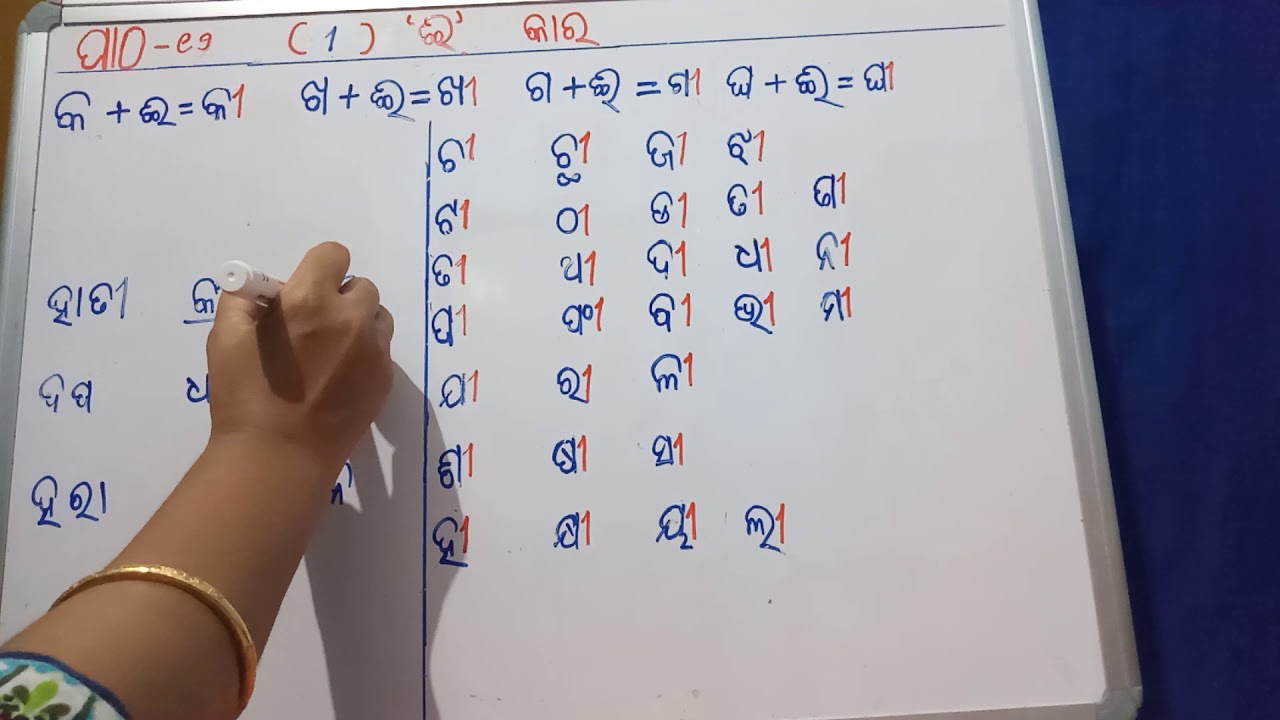 ପାଠ-୧୨ (ୀ) 'ଈ' କାର
କ + ଈ = କୀ ଖ + ଈ = ଖୀ ଗ + ଈ = ଗୀ ଘ + ଈ = ଘୀ
ଚୀ ଛୀ ଜୀ ଝୀ
ଟୀ ଠୀ ଡୀ ଢୀ ଣୀ
ତୀ ଥୀ ଦୀ ଧୀ ନୀ
ପୀ ଫୀ ବୀ ଭୀ ମୀ
ଯୀ ରୀ ଳୀ
ଶୀ ଷୀ ସୀ
ହୀ କ୍ଷୀ ୟୀ ଲୀ
ହାତୀ
ଦପ
ହରା